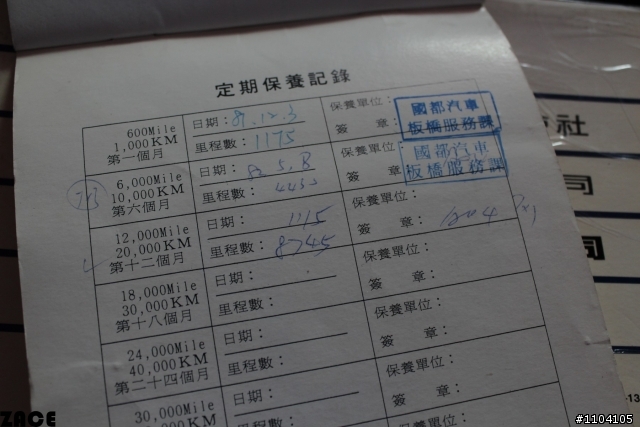 定期保養記錄
600Mile
1,000KM
第一個月
日期：
里程數：1175
保養單位：國都汽車
簽　章：板橋服務課
6,000Mile
10,000KM
第六個月
日期：
里程數：4455
保養單位：國都汽車
簽　章：板橋服務課
12,000Mile
20,000KM
第十二個月
日期：1115
里程數：8745
保養單位：
簽　章：
18,000Mile
30,000KM
第十八個月
日期：
里程數：
保養單位：
簽　章：
24,000Mile
40,000KM
第二十四個月
日期：
里程數：
保養單位：
簽　章：
30,000Mile
日期：
保養單位：
社
司
司
ZACE
#1104105